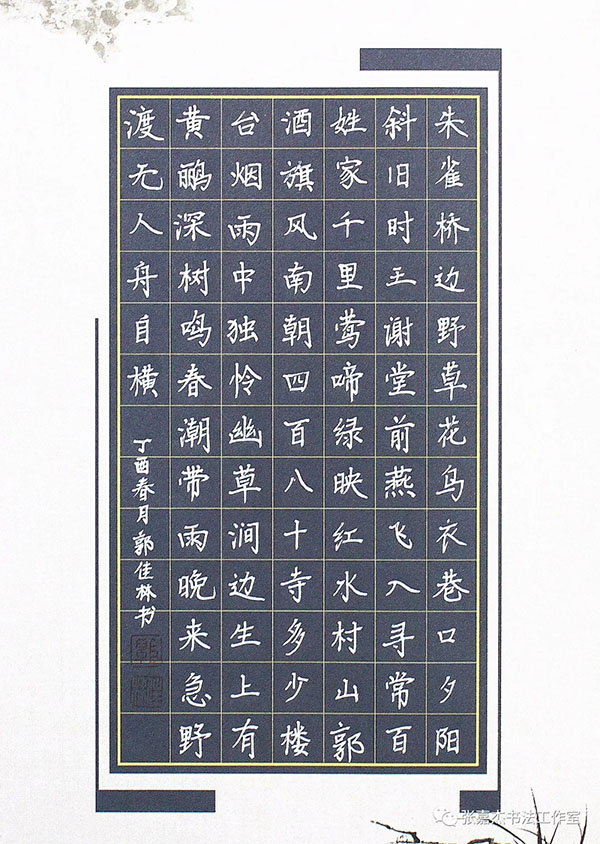 朱雀桥边野草花乌衣巷口夕阳
斜旧时王谢堂前燕飞入寻常百
姓家千里莺啼绿映红水村山郭
酒旗风南朝四百八十寺多少楼
台烟雨中独怜幽草涧边生上有
黄鹂深树鸣春潮带雨晚来急野
渡无人舟自横
丁酉春月郭佳林书
张嘉杰书法工作室